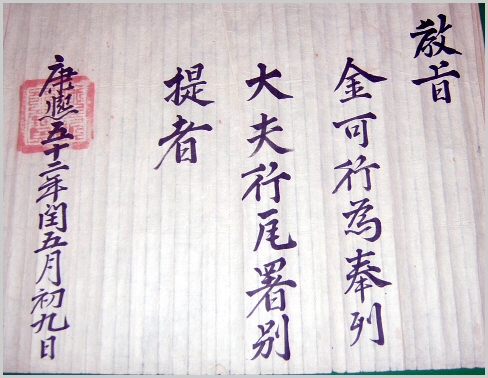 敎旨
金可行為奉列
大夫行尾署別
提者
康熙五十二年閏五月初九日